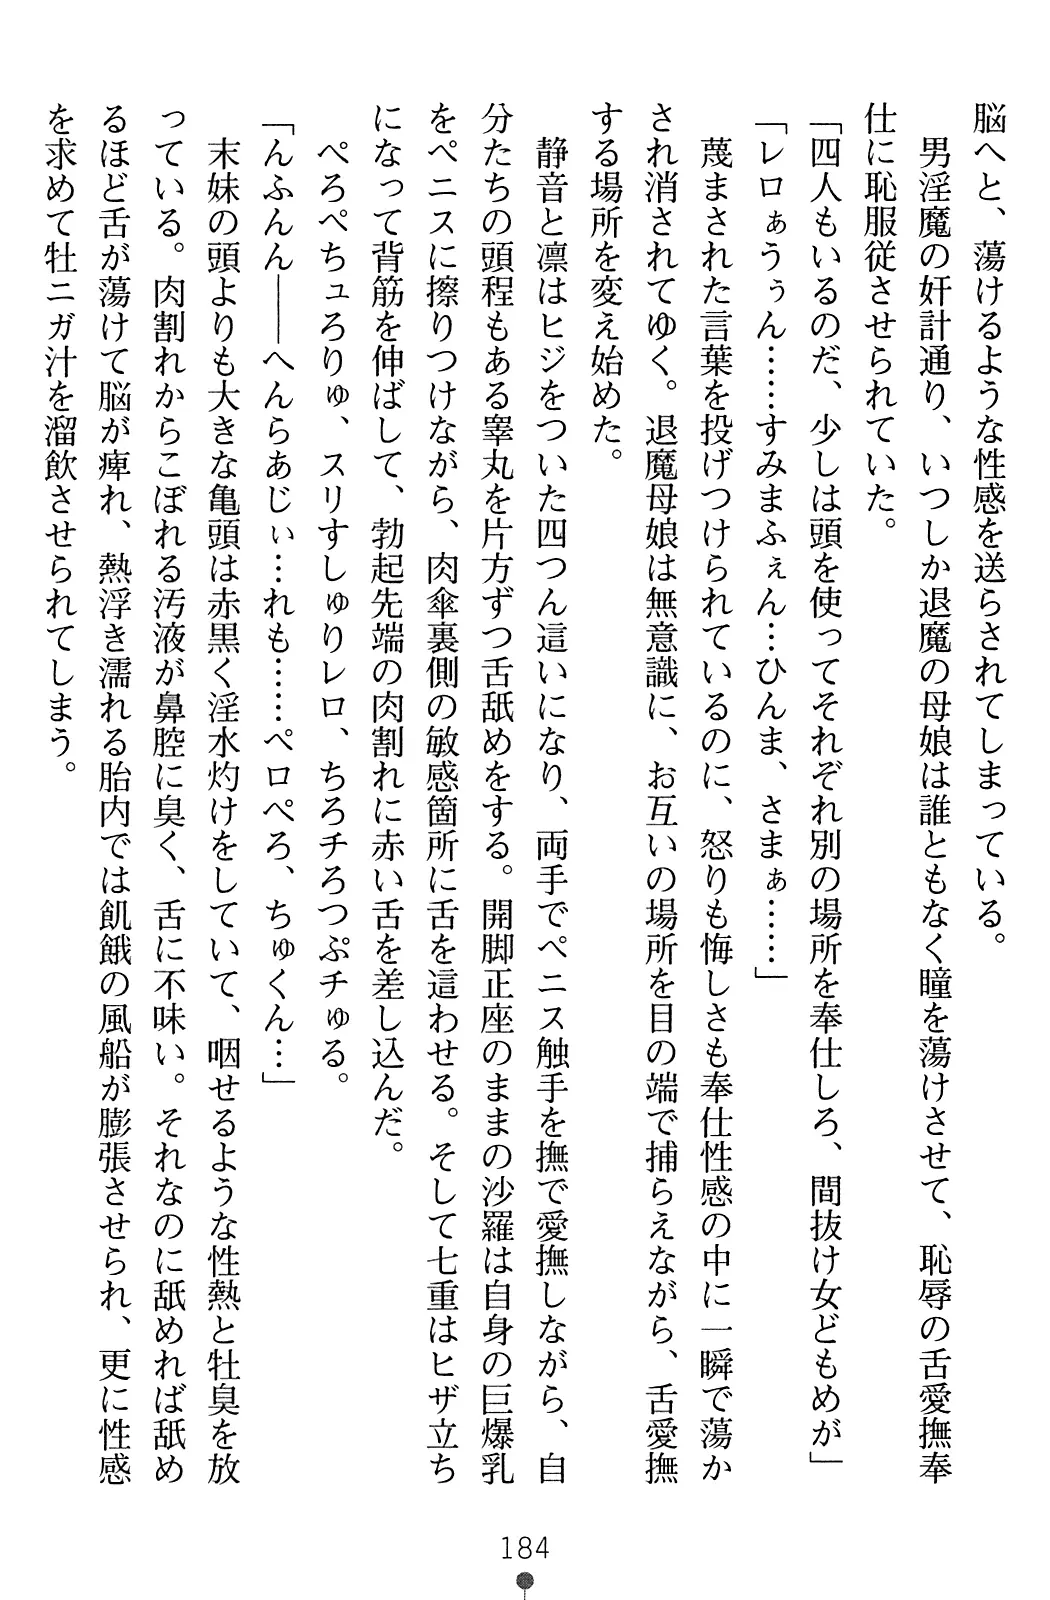 脳へと、蕩けるような性感を送らされてしまっている。
男淫魔の奸計通り、いつしか退魔の母娘は誰ともなく瞳を蕩けさせて、恥辱の舌愛撫奉
仕に恥服従させられていた。
「四人もいるのだ、少しは頭を使ってそれぞれ別の場所を奉仕しろ、間抜け女どもめが」
「レロぁうぅん……すみまふぇん…ひんま、さまぁ……」
蔑まされた言葉を投げつけられているのに、怒りも悔しさも奉仕性感の中に一瞬で蕩か
され消されてゆく。退魔母娘は無意識に、お互いの場所を目の端で捕らえながら、舌愛撫
する場所を変え始めた。
静音と凛はヒジをついた四つん這いになり、両手でペニス触手を撫で愛撫しながら、自
分たちの頭程もある睾丸を片方ずつ舌舐めをする。開脚正座のままの沙羅は自身の巨爆乳
をペニスに擦りつけながら、肉傘裏側の敏感箇所に舌を這わせる。そして七重はヒザ立ち
になって背筋を伸ばして、勃起先端の肉割れに赤い舌を差し込んだ。
ぺろぺちュろりゅ、スリすしゅりレロ、ちろチろつぷチゅる。
「んふんん――へんらあじぃ…れも……ペロぺろ、ちゅくん…」
末妹の頭よりも大きな亀頭は赤黒く淫水灼けをしていて、咽せるような性熱と牡臭を放
っている。肉割れからこぼれる汚液が鼻腔に臭く、舌に不味い。それなのに舐めれば舐め
るほど舌が蕩けて脳が痺れ、熱浮き濡れる胎内では飢餓の風船が膨張させられ、更に性感
を求めて牡ニガ汁を溜飲させられてしまう。
184